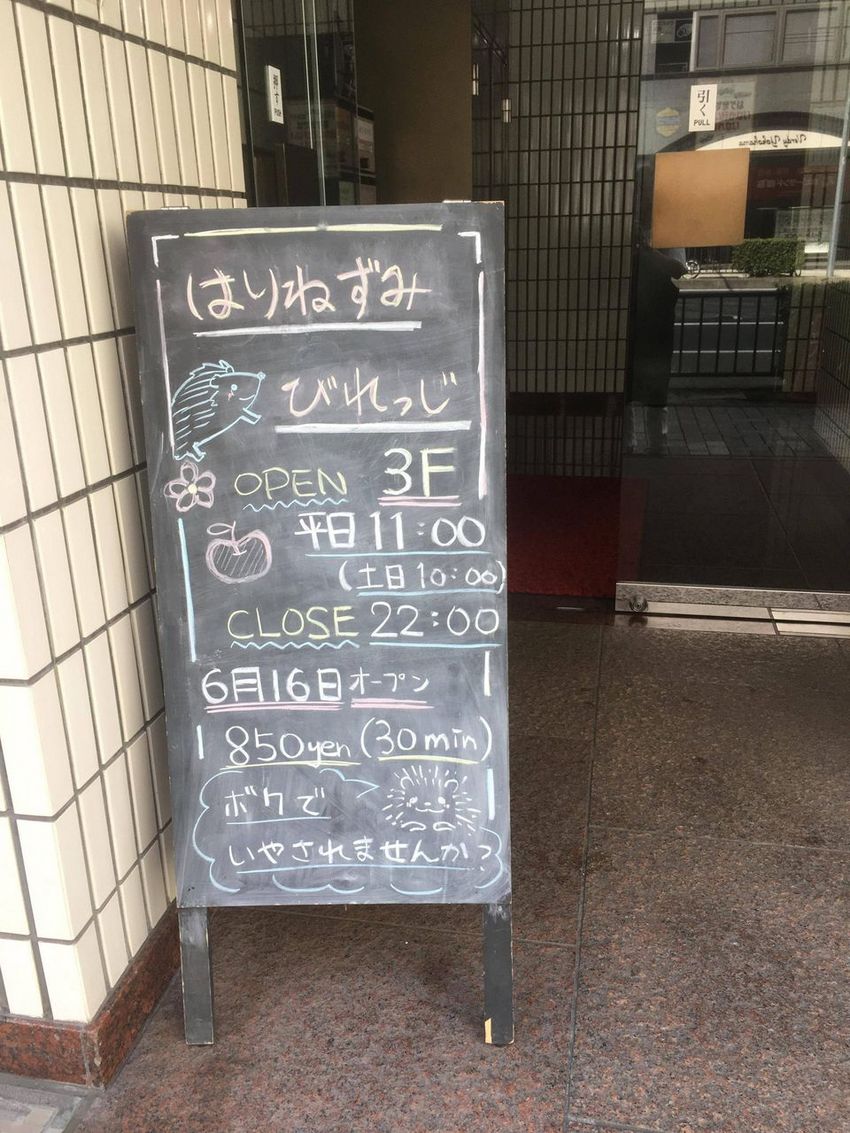 押す
PUSH
引く
PULL
はりねずみ
びれっじ
OPEN 3F
平日 11:00
(土日 10:00)
CLOSE 22:00
6月16日 オープン
850yen (30min)
ボクで
いやされませんか?